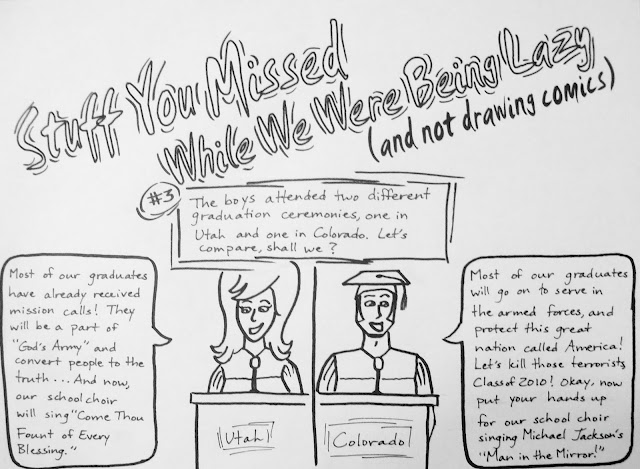 Stuff You Missed
While We Were Being Lazy
(and not drawing comics)
#3
The boys attended two different
graduation ceremonies, one in
Utah and one in Colorado. Let's
compare, shall we?
Most of our graduates
have already received
mission calls! They
will be a part of
"God's Army" and
convert people to the
truth... And now,
our school choir
will sing "Come Thou
Fount of Every
Blessing."
Most of our graduates
will go on to serve in
the armed forces, and
protect this great
nation called America!
Let's kill those terrorists,
Class of 2010! Okay, now
put your hands up
for our school choir
singing Michael Jackson's
"Man in the Mirror!"
Utah
Colorado